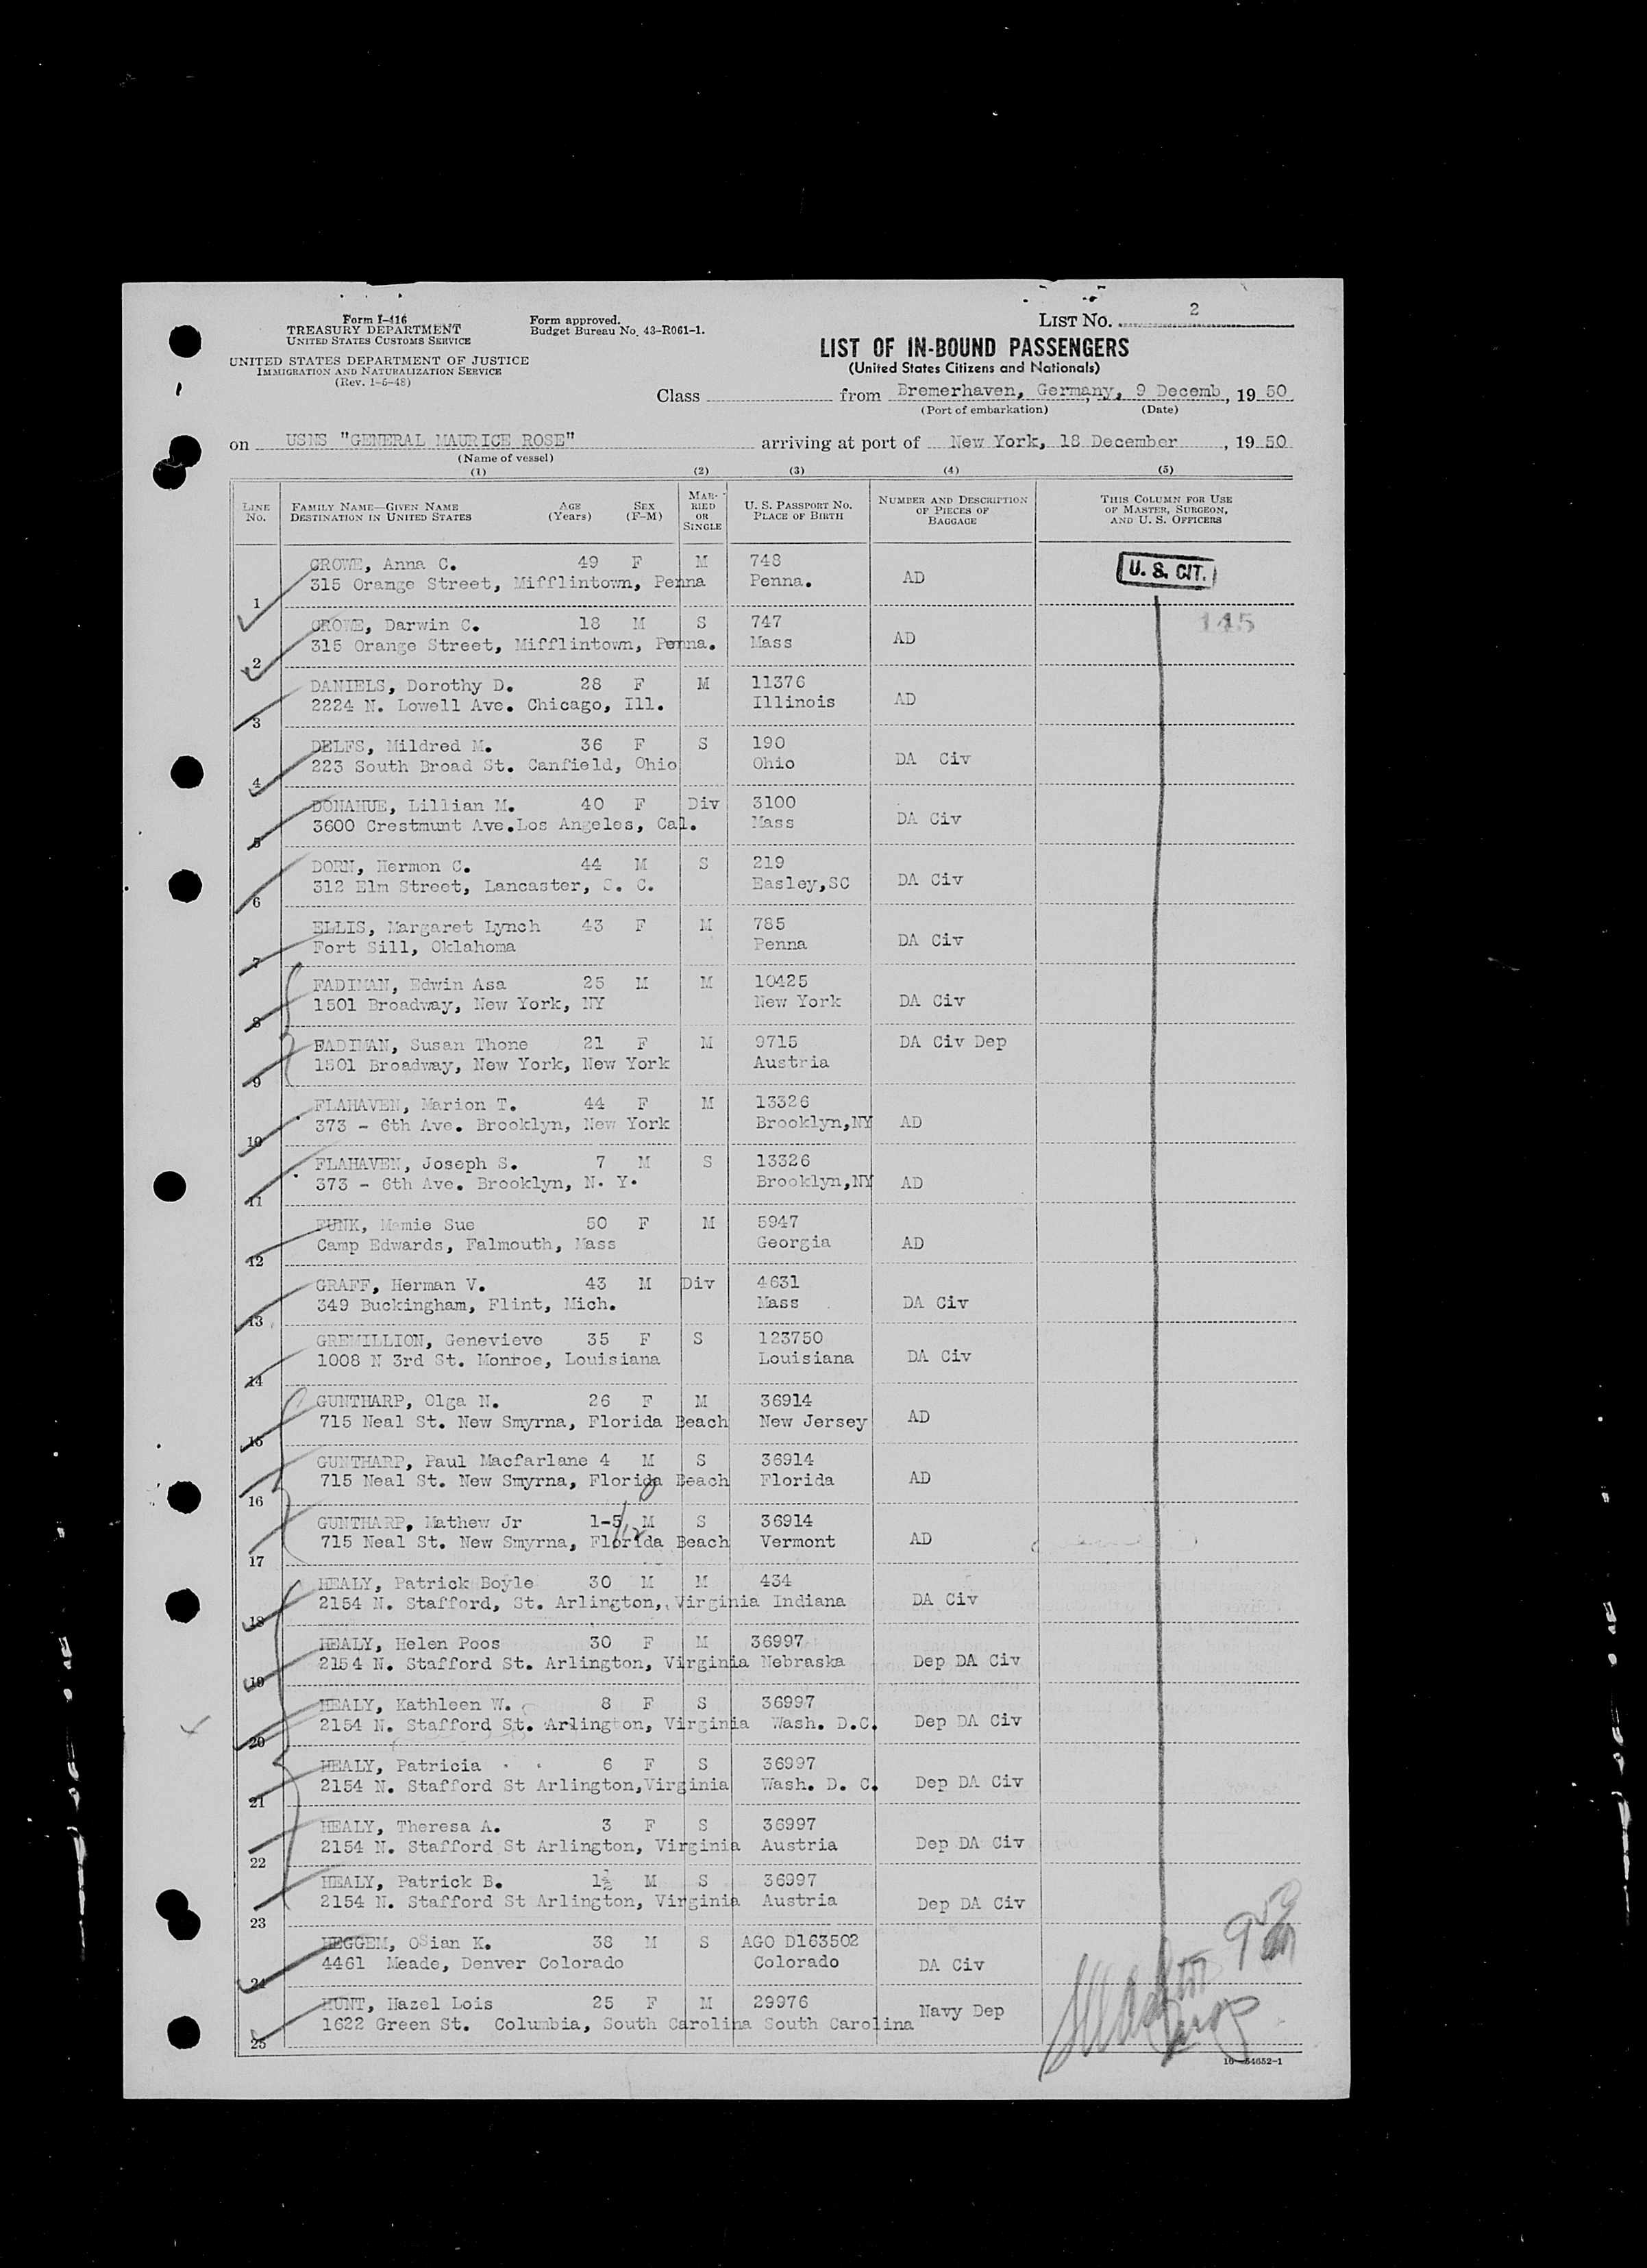 Form I-416
TREASURY DEPARTMENT
UNITED STATES CUSTOMS SERVICE
UNITED STATES DEPARTMENT OF JUSTICE
IMMIGRATION AND NATURALIZATION SERVICE
(Rev. 1-5-48)
Form approved.
Budget Bureau No. 43-R061-1.
LIST NO. 2
LIST OF IN-BOUND PASSENGERS
(United States Citizens and Nationals)
Class from Bremerhaven, Germany, 9 Decemb, 19 50
(Port of embarkation) (Date)
on USNS "GENERAL MAURICE ROSE" arriving at port of New York, 18 December, 19 50
(Name of vessel)
(1) (2) (3) (4) (5)
LINE NO. FAMILY NAME—GIVEN NAME DESTINATION IN UNITED STATES AGE (Years) SEX (F-M) MARRIED OR SINGLE U. S. PASSPORT NO. PLACE OF BIRTH NUMBER AND DESCRIPTION OF PIECES OF BAGGAGE THIS COLUMN FOR USE OF MASTER, SURGEON, AND U. S. OFFICERS
U. S. CIT.
145
1 CROWE, Anna C. 49 F M 748
315 Orange Street, Mifflintown, Penna Penna. AD
2 CROWE, Darwin C. 18 M S 747
315 Orange Street, Mifflintown, Penna. Mass AD
3 DANIELS, Dorothy D. 28 F M 11376
2224 N. Lowell Ave. Chicago, Ill. Illinois AD
4 DELFS, Mildred M. 36 F S 190
223 South Broad St. Canfield, Ohio Ohio DA Civ
5 DONAHUE, Lillian M. 40 F Div 3100
3600 Crestmunt Ave.Los Angeles, Cal. Mass DA Civ
6 DORN, Hermon C. 44 M S 219
312 Elm Street, Lancaster, S. C. Easley,SC DA Civ
7 ELLIS, Margaret Lynch 43 F M 785
Fort Sill, Oklahoma Penna DA Civ
8 FADIMAN, Edwin Asa 25 M M 10425
1501 Broadway, New York, NY New York DA Civ
9 FADIMAN, Susan Thone 21 F M 9715 DA Civ Dep
1501 Broadway, New York, New York Austria
10 FLAHAVEN, Marion T. 44 F M 13326
373 - 6th Ave. Brooklyn, New York Brooklyn,NY AD
11 FLAHAVEN, Joseph S. 7 M S 13326
373 - 6th Ave. Brooklyn, N. Y. Brooklyn,NY AD
12 FUNK, Mamie Sue 50 F M 5947
Camp Edwards, Falmouth, Mass Georgia AD
13 GRAFF, Herman V. 43 M Div 4631
349 Buckingham, Flint, Mich. Mass DA Civ
14 GREMILLION, Genevieve 35 F S 123750
1008 N 3rd St. Monroe, Louisiana Louisiana DA Civ
15 GUNTHARP, Olga N. 26 F M 36914
715 Neal St. New Smyrna, Florida Beach New Jersey AD
16 GUNTHARP, Paul Macfarlane 4 M S 36914
715 Neal St. New Smyrna, Florida Beach Florida AD
17 GUNTHARP, Mathew Jr 1-5 /12 M S 36914
715 Neal St. New Smyrna, Florida Beach Vermont AD
18 HEALY, Patrick Boyle 30 M M 434
2154 N. Stafford, St. Arlington, Virginia Indiana DA Civ
19 HEALY, Helen Poos 30 F M 36997
2154 N. Stafford St. Arlington, Virginia Nebraska Dep DA Civ
20 HEALY, Kathleen W. 8 F S 36997
2154 N. Stafford St. Arlington, Virginia Wash. D.C. Dep DA Civ
21 HEALY, Patricia 6 F S 36997
2154 N. Stafford St Arlington,Virginia Wash. D. C. Dep DA Civ
22 HEALY, Theresa A. 3 F S 36997
2154 N. Stafford St Arlington, Virginia Austria Dep DA Civ
23 HEALY, Patrick B. 1½ M S 36997
2154 N. Stafford St Arlington, Virginia Austria Dep DA Civ
24 HEGGEM, OSian K. 38 M S AGO D163502
4461 Meade, Denver Colorado Colorado DA Civ
25 HUNT, Hazel Lois 25 F M 29976 Navy Dep
1622 Green St. Columbia, South Carolina South Carolina